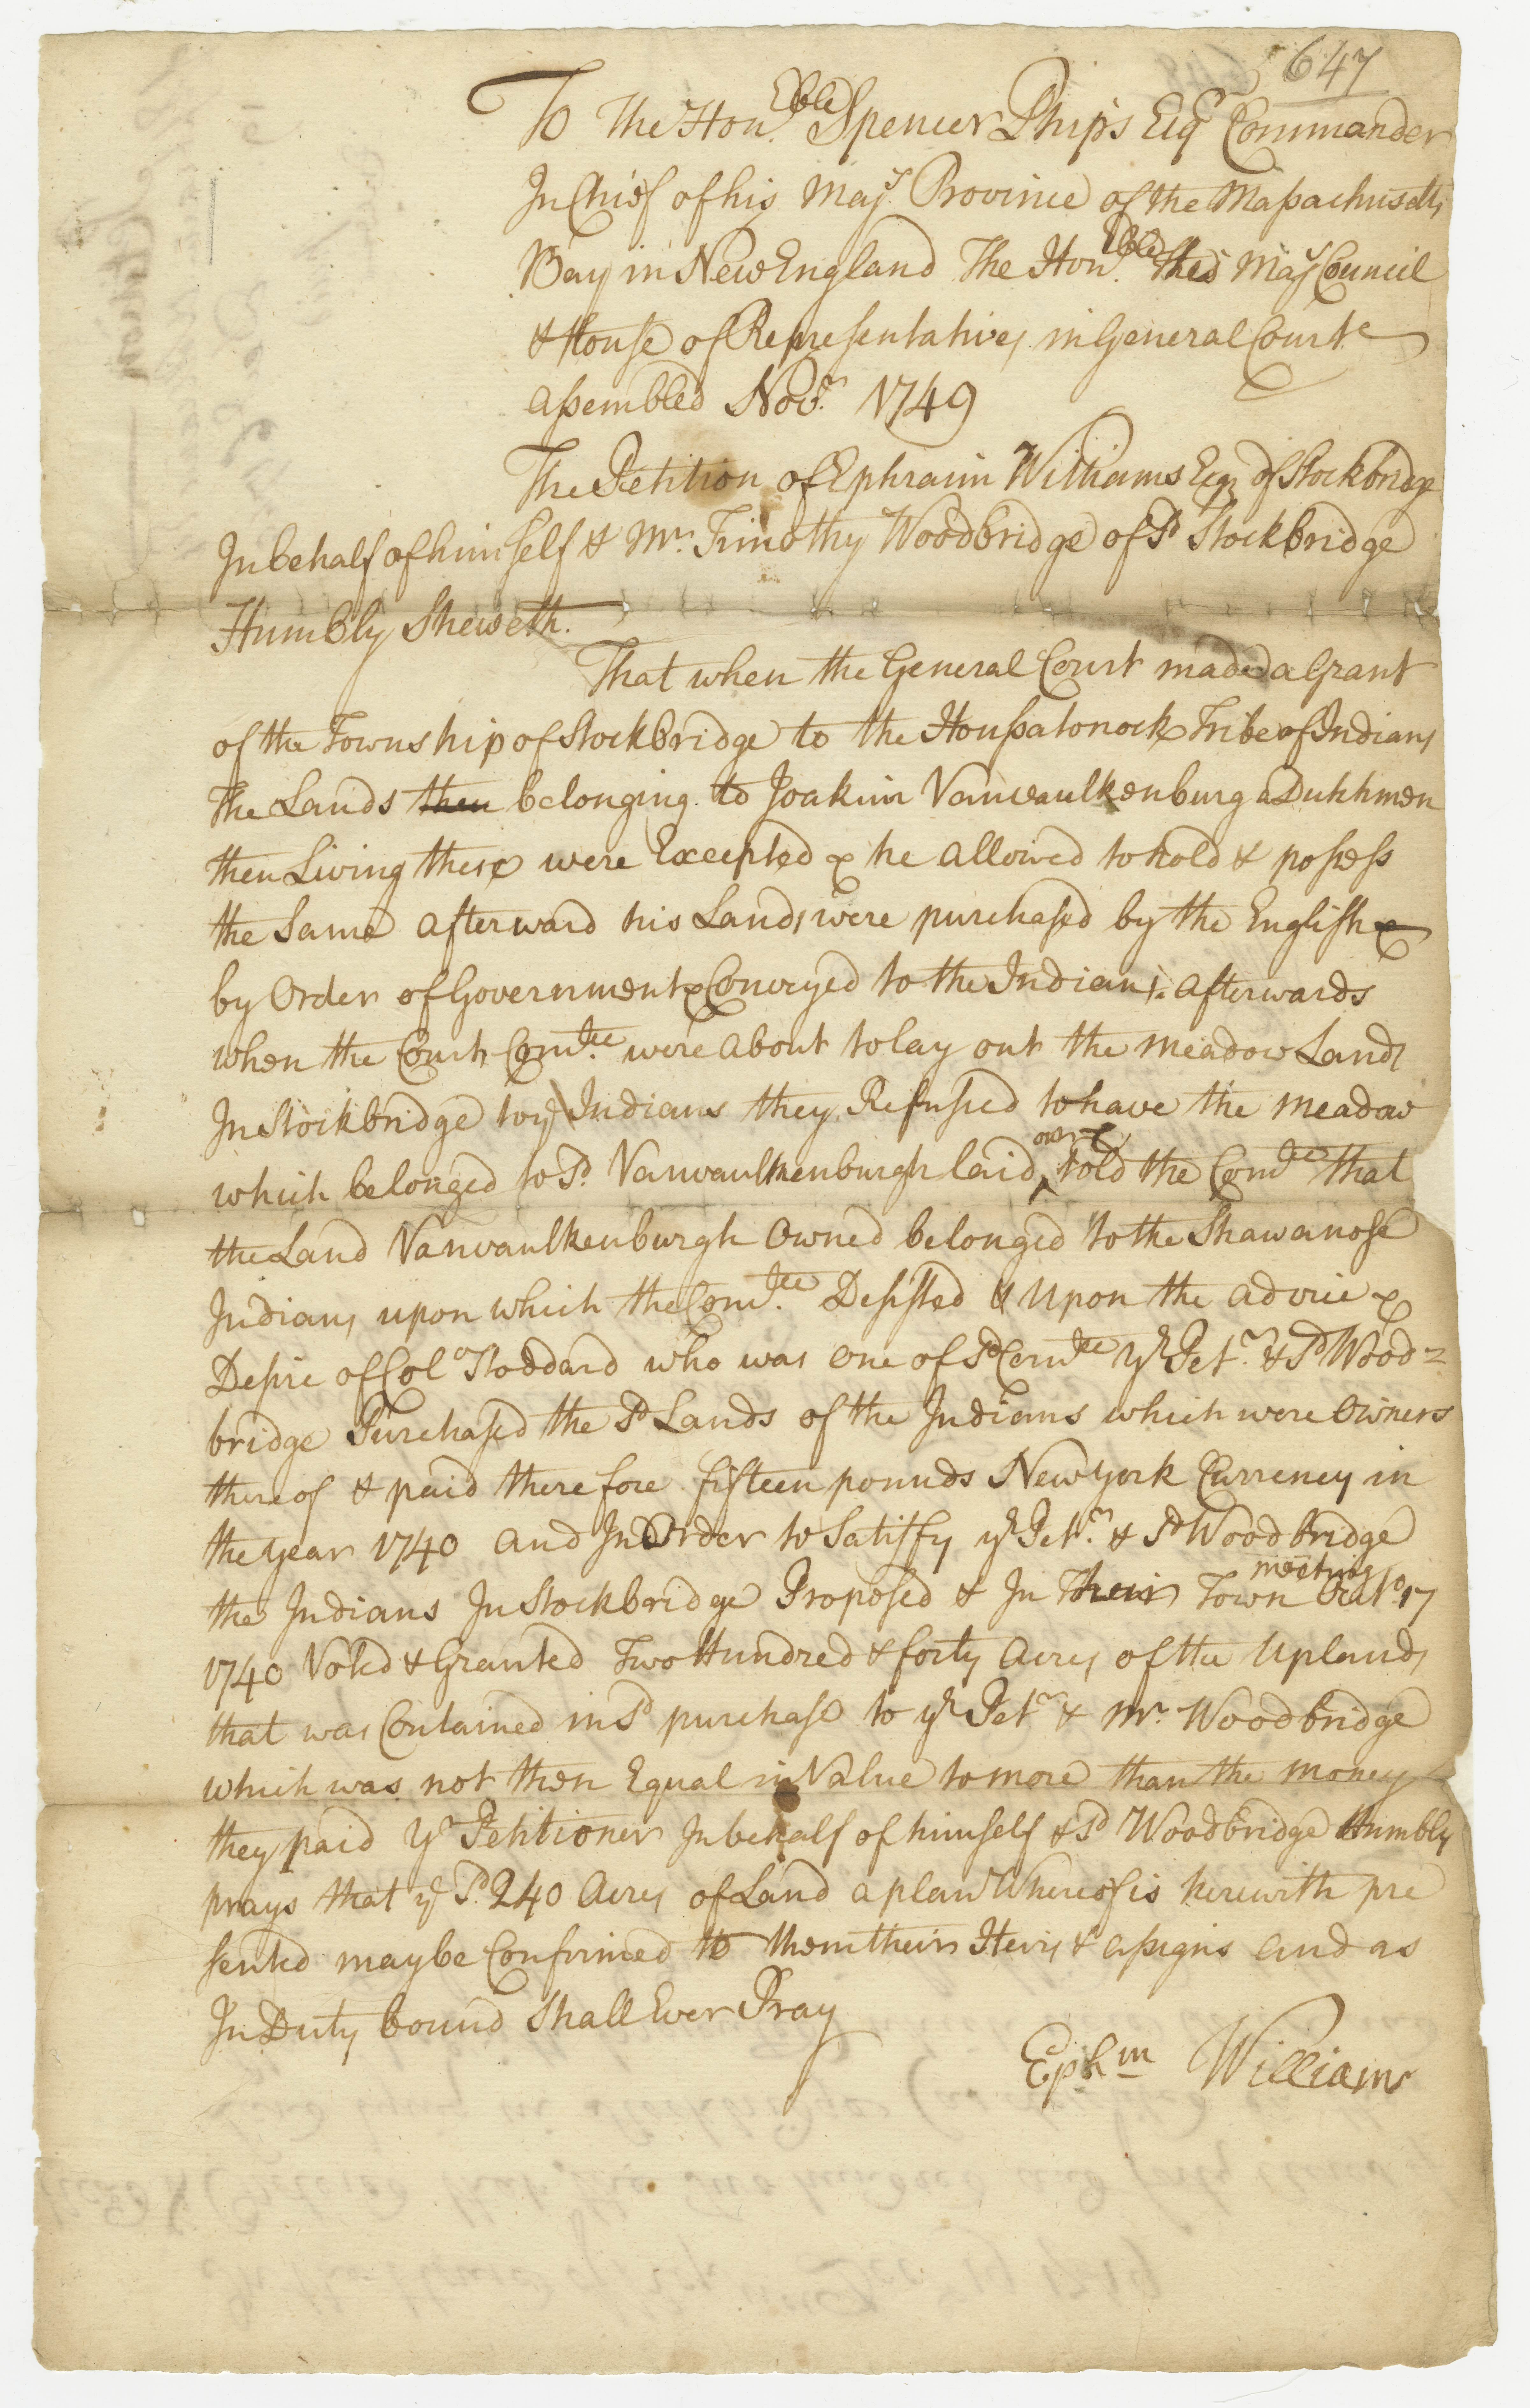 647
To The Hon.ble Spencer Phips Esqr Commander
In Chief of his Majs. Province of the Massachusetts
Bay in New England The Hon.ble His Majs Council
& House of Representatives in General Court
assembled Novr. 1749
The Petition of Ephraim Williams Esqr of Stockbridge
In behalf of himself & Mr. Timothy Woodbridge of sd Stockbridge
Humbly Sheweth.
That when the General Court made a Grant
of the Township of Stockbridge to the Houssatonock Tribe of Indians
The Lands then belonging to Joakim Vanvaulkenburg a Duthhmen
then Living there were Excepted & he allowed to hold & possess
the Same afterward his Lands were purchased by the English &
by Order of Government & Conveyed to the Indians. afterwards
when the Courts Comtee. were about to lay out the meadow Lands
In Stockbridge to ye Indians they Refussed to have the meadow
which belonged to sd. Vanvaulkenburgh laid out & told the Comtee that
the Land Vanvaulkenburgh Owned belonged to the Shawanose
Indians upon which the Comtee. Desisted & Upon the advice &
Desire of Colo Stoddard who was one of sd Comtee yr Petr. & sd Wood=
bridge Purchased the sd Lands of the Indians which were Owners
thereof & paid therefore fifteen pounds New york Currency in
the year 1740 and In Order to Satisfy yr Petr. & sd Woodbridge
the Indians In Stockbridge Proposed & In Their Town meeting Octo. 17
1740 Voted & Granted Two Hundred & forty acres of the Uplands
that was Contained in sd purchase to yr Petr & Mr. Woodbridge
which was not then Equal in Value to more than the money
they paid Yr Petitioner In behalf of himself & sd Woodbridge Humbly
prays that ye sd. 240 acres of Land a plan Whereof is herewith pre
sented may be Confirmed to them their Heirs & assigns and as
In Duty bound Shall Ever Pray
Ephm Williams